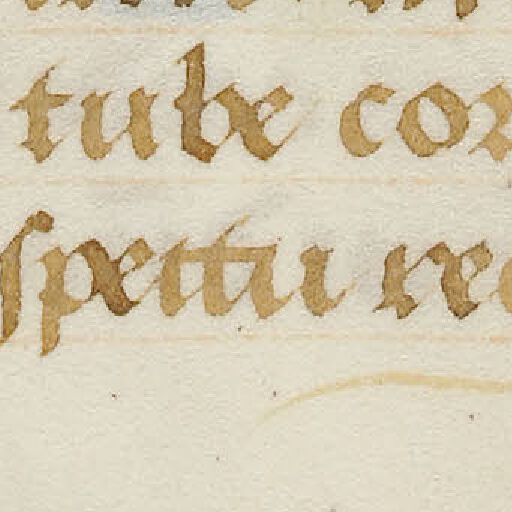 tube cor
spectu re